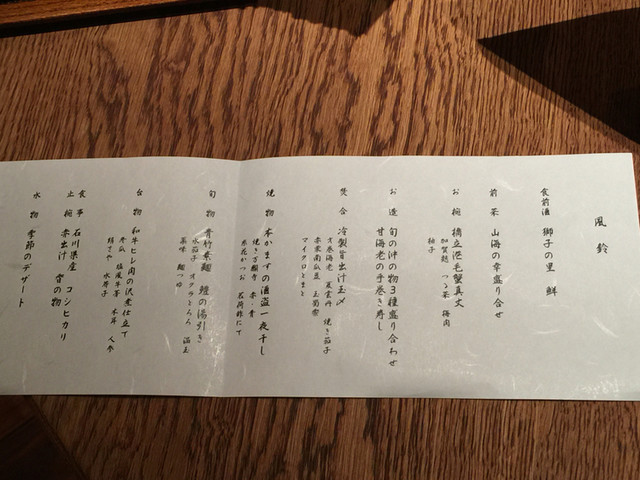 風鈴
食前酒 獅子の里 鮮
前菜 山海の幸盛り合せ
お椀 橋立港毛蟹真丈
加賀麩 つる菜 梅肉
柚子
お造 旬の沖の物3種盛り合わせ
甘海老の手巻き寿し
焚合 冷製旨出汁玉〆
才巻海老 夏雲丹 焼き茄子
赤雲南瓜 玉蜀黍
マイクロとまと
焼物 本かますの酒盗一夜干し
焼き万願寺
糸花かつお 茗荷酢にて
旬物 青竹素麺 鱧の湯引き
水茄子 オクラとろろ 温玉
薬味 麺つゆ
台物 和牛ヒレ肉の沢煮仕立て
冬瓜 塩尾牛蒡 木耳 人参
絹さや 水芥子
食事 石川県産 コシヒカリ
止椀 赤出汁 香の物
水物 季節のデザート